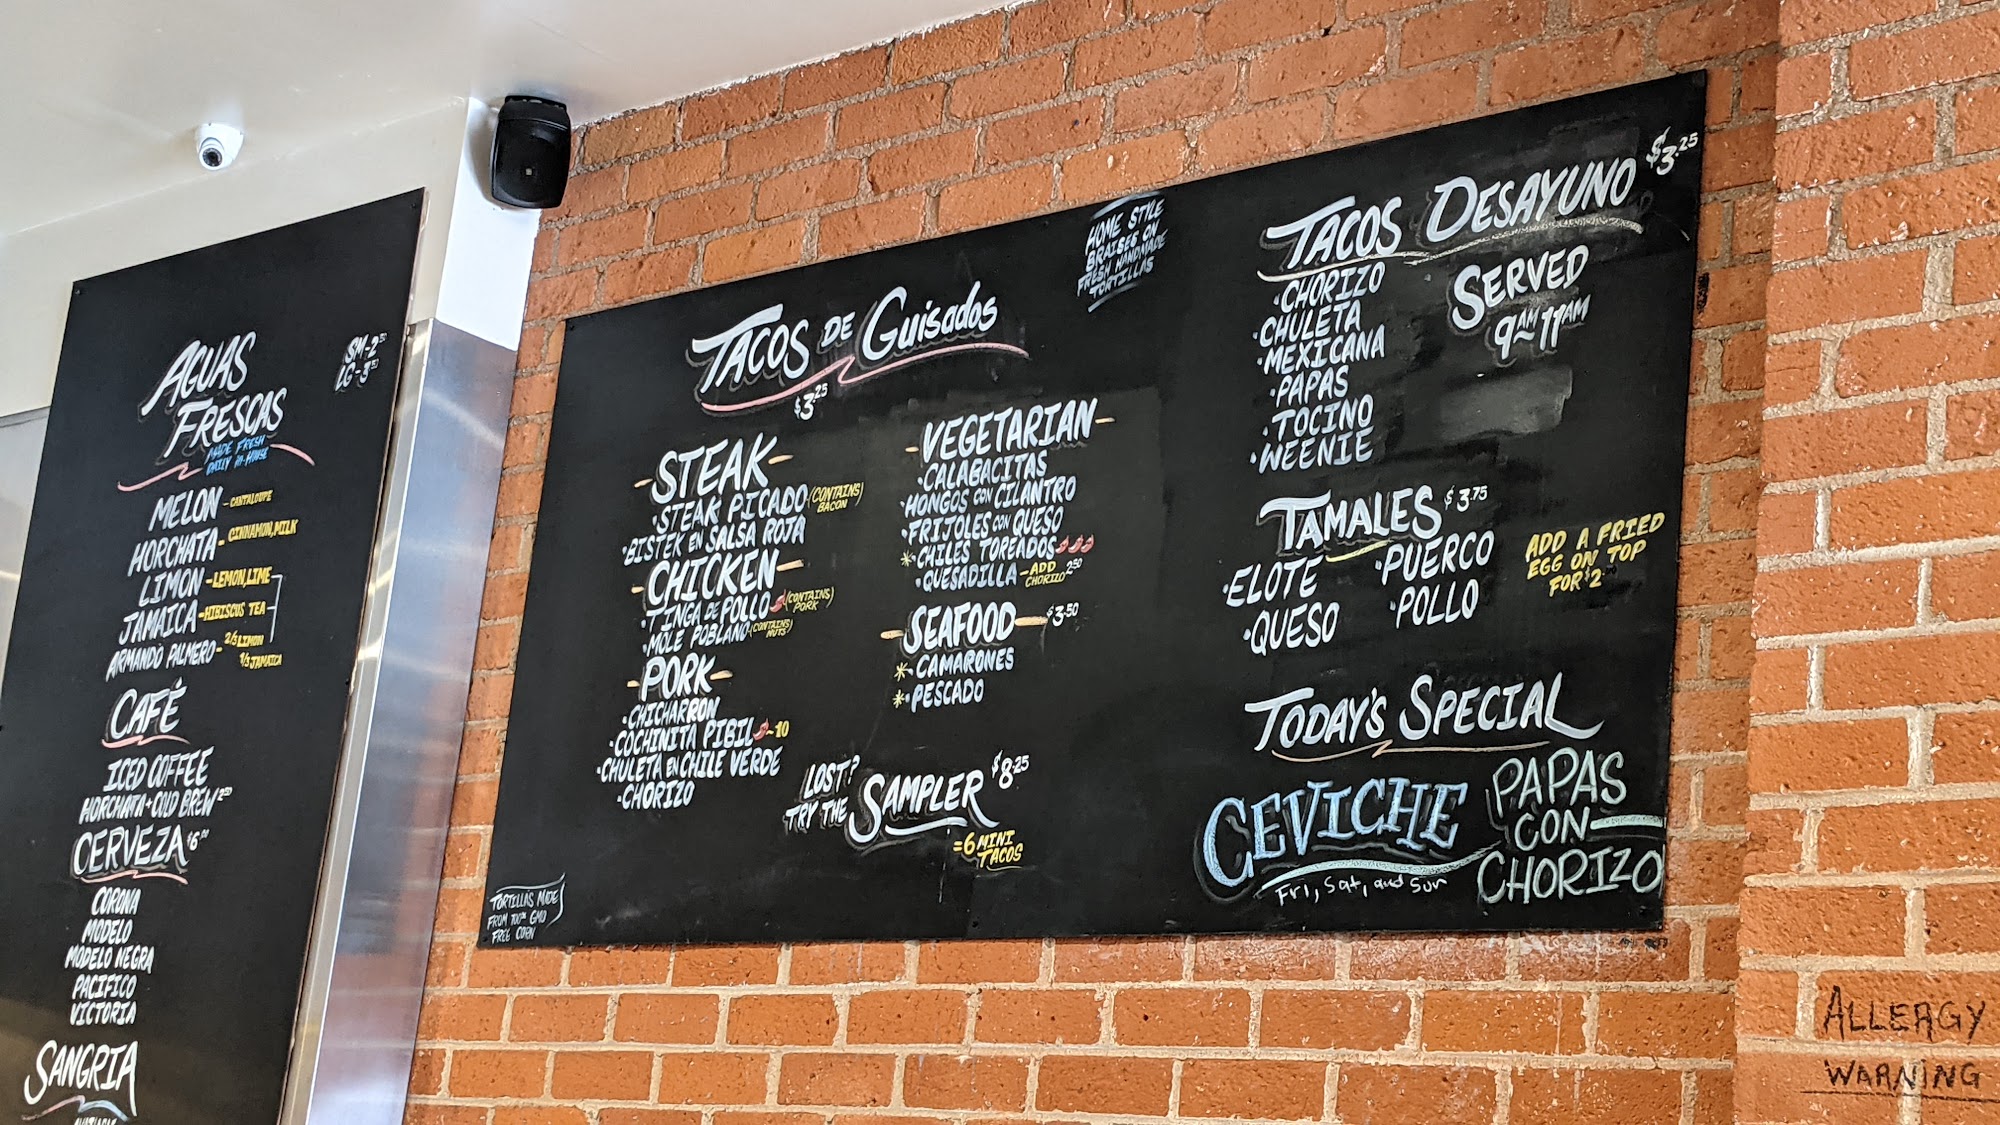 AGUAS
FRESCAS
SM-2.50
LG-3.50
MADE FRESH
DAILY IN-HOUSE
MELON - CANTALOUPE
HORCHATA - CINNAMON, MILK
LIMON - LEMON, LIME
JAMAICA - HIBISCUS TEA
ARMANDO PALMERO - 2/3 LIMON
1/3 JAMAICA
CAFÉ
ICED COFFEE
HORCHATA + COLD BREW
CERVEZA $6.00
CORONA
MODELO
MODELO NEGRA
PACIFICO
VICTORIA
SANGRIA
HOME STYLE
BRAISES ON
FRESH HANDMADE
TORTILLAS
TACOS DE Guisados
$3.25
STEAK
• STEAK PICADO (CONTAINS
BACON)
• BISTEK EN SALSA ROJA
CHICKEN
• TINGA DE POLLO (CONTAINS
PORK)
• MOLE POBLANO (CONTAINS
NUTS)
PORK
• CHICHARRON
• COCHINITA PIBIL ~10
• CHULETA EN CHILE VERDE
• CHORIZO
VEGETARIAN
• CALABACITAS
• HONGOS CON CILANTRO
• FRIJOLES CON QUESO
* • CHILES TOREADOS
• QUESADILLA - ADD
CHORIZO 2.50
SEAFOOD $3.50
* • CAMARONES
* • PESCADO
LOST?
TRY THE SAMPLER $8.25
= 6 MINI
TACOS
TORTILLAS MADE
FROM 100% GMO
FREE CORN
TACOS DESAYUNO $3.25
SERVED
9AM 11AM
• CHORIZO
• CHULETA
• MEXICANA
• PAPAS
• TOCINO
• WEENIE
TAMALES $3.75
• ELOTE
• QUESO
• PUERCO
• POLLO
ADD A FRIED
EGG ON TOP
FOR $2
TODAY'S SPECIAL
CEVICHE
Fri, Sat, and Sun
PAPAS
CON
CHORIZO
ALLERGY
WARNING